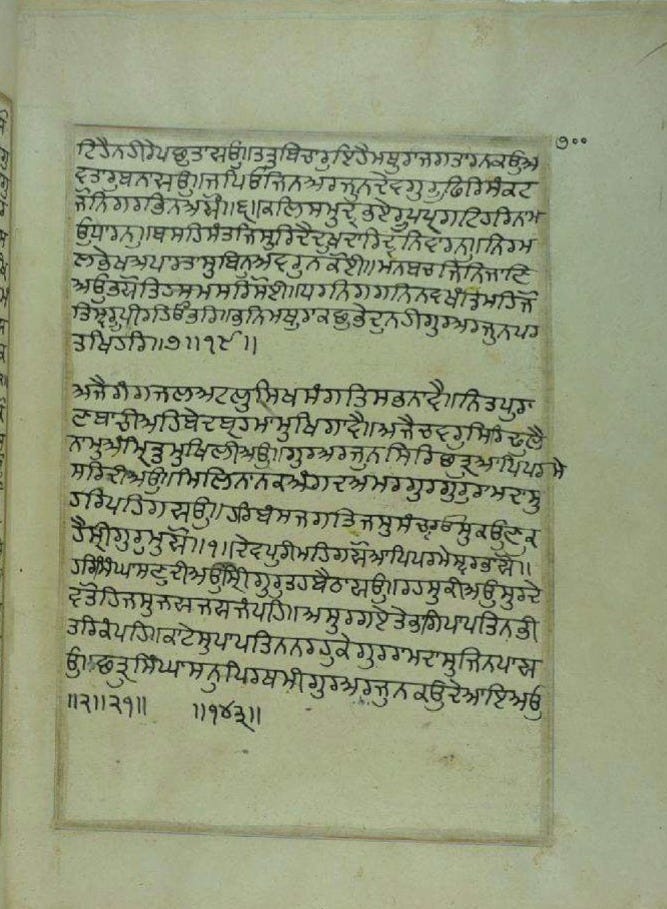 ੭੦੦
ਟਿਹੈਨਹੀਰੇਪਛੁਤਾਸਉ॥ਤਤੁਬਿਚਾਰੁਇਹੈਮਥੁਰਾਜਗਤਾਰਨਕਉਅ
ਵਤਾਰੁਬਨਾਸਉ॥ਜਪਿਓਜਿਨਅਰਜੁਨਦੇਵਗੁਰੂਫਿਰਿਸੰਕਟ
ਜੋਨਿਗਰਭਿਨਅਸੌ॥੬॥ਕਲਿਸਮੁਦ੍ਰਭਏਰੂਪਪ੍ਰਗਟਿਹਰਿਨਾਮ
ਉਧਾਰਨੁ॥ਬਸਹਿਸੰਤਜਿਸੁਰਿਦੈਦੁਖਦਾਰਿਦ੍ਰਨਿਵਾਰਨੁ॥ਨਿਰਮ
ਲਭੇਖਅਪਾਰਤਾਸੁਬਿਨੁਅਵਰੁਨਕੋਈ॥ਮਨਬਚਜਿਨਿਜਾਣਿ
ਅਉਭਯੋਤਿਹਸਮਸਰਿਸੋਈ॥ਧਰਨਿਗਗਨਿਨਵਖੰਤਿਮਹਿਜੋ
ਤਿਸ੍ਵਰੂਪੀਰਹਿਓਭਰਿ॥ਭਨਿਮਥੁਰਾਕਛੁਭੇਦੁਨਹੀਗੁਰਅਰਜੁਨਪਰ
ਤਖਿਹਰਿ॥੭॥੧੯॥
ਅਜੈਗੰਗਜਲਅਟਲੁਸਿਖਸੰਗਤਿਸਭਨਾਵੈ॥ਨਿਤਪੁਰਾ
ਣਬਾਚੀਅਹਿਬੇਦਬ੍ਰਹਮਾਮੁਖਿਗਾਵੈ॥ਅਜੈਚਵਰੁਸਿਰਿਢੁਲੈ
ਨਾਮੁਅੰਮ੍ਰਿਤੁਮੁਖਿਲੀਅਉ॥ਗੁਰਅਰਜੁਨਸਿਰਿਛਤ੍ਰੁਆਪਿਪਰਮੇ
ਸਰਿਦੀਅਉ॥ਮਿਲਿਨਾਨਕਅੰਗਦਅਮਰਗੁਰਗੁਰੁਰਾਮਦਾਸੁ
ਹਰਿਪਹਿਗਯਉ॥ਹਰਿਬੰਸਜਗਤਿਜਸੁਸੰਚਰ੍ਯਉਸੁਕਉਣੁਕ
ਹੈਸ੍ਰੀਗੁਰੁਮੁਯੌ॥੧॥ਦੇਵਪੁਰੀਮਹਿਗਯੌਆਪਿਪਰਮੇਸ੍ਵਰਭਾਯੌ॥
ਹਰਿਸਿੰਘਾਸਣੁਦੀਅਉਸਿਰੀਗੁਰੁਤਹਬੈਠਾਯਉ॥ਰਹਸੁਕੀਅਉਸੁਰਦੇ
ਵਤੋਹਿਜਸੁਜਯਜਯਜੰਪਹਿ॥ਅਸੁਰਗਏਤੇਭਾਗਿਪਾਪਤਿਨਭੀ
ਤਰਿਕੰਪਹਿ॥ਕਾਟੇਸੁਪਾਪਤਿਨਨਰਹੁਕੇਗੁਰਰਾਮਦਾਸੁਜਿਨਪਾਯ
ਉ॥ਛਤ੍ਰੁਸਿੰਘਾਸਨੁਪਿਰਥਮੀਗੁਰਅਰਜੁਨਕਉਦੇਆਇਅਉ
॥੨॥੨੧॥ ॥੧੪੩॥